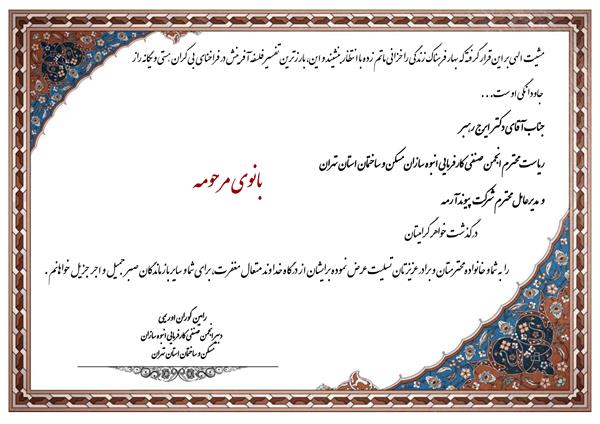 مشیت الهی بر این قرار گرفته که بهار فرحناک زندگی را خزانی ماتم زده با انتظار بنشیند و این، بارزترین تفسیر فلسفه آفرینش در فراخنای بی کران هستی و یگانه راز
جاودانگی اوست...
جناب آقای دکتر ایرج رهبر
ریاست محترم انجمن صنفی کارفرمایی انبوه سازان مسکن و ساختمان استان تهران
و مدیرعامل محترم شرکت پیوند آرمه
درگذشت خواهر گرامیتان
بانوی مرحومه
را به شما و خانواده محترمتان و برادر عزیزتان تسلیت عرض نموده برایشان از درگاه خداوند متعال مغفرت، برای شما و سایر بازماندگان صبر جمیل و اجر جزیل خواهانم.
رامین گوران اوریمی
دبیر انجمن صنفی کارفرمایی انبوه سازان
مسکن و ساختمان استان تهران